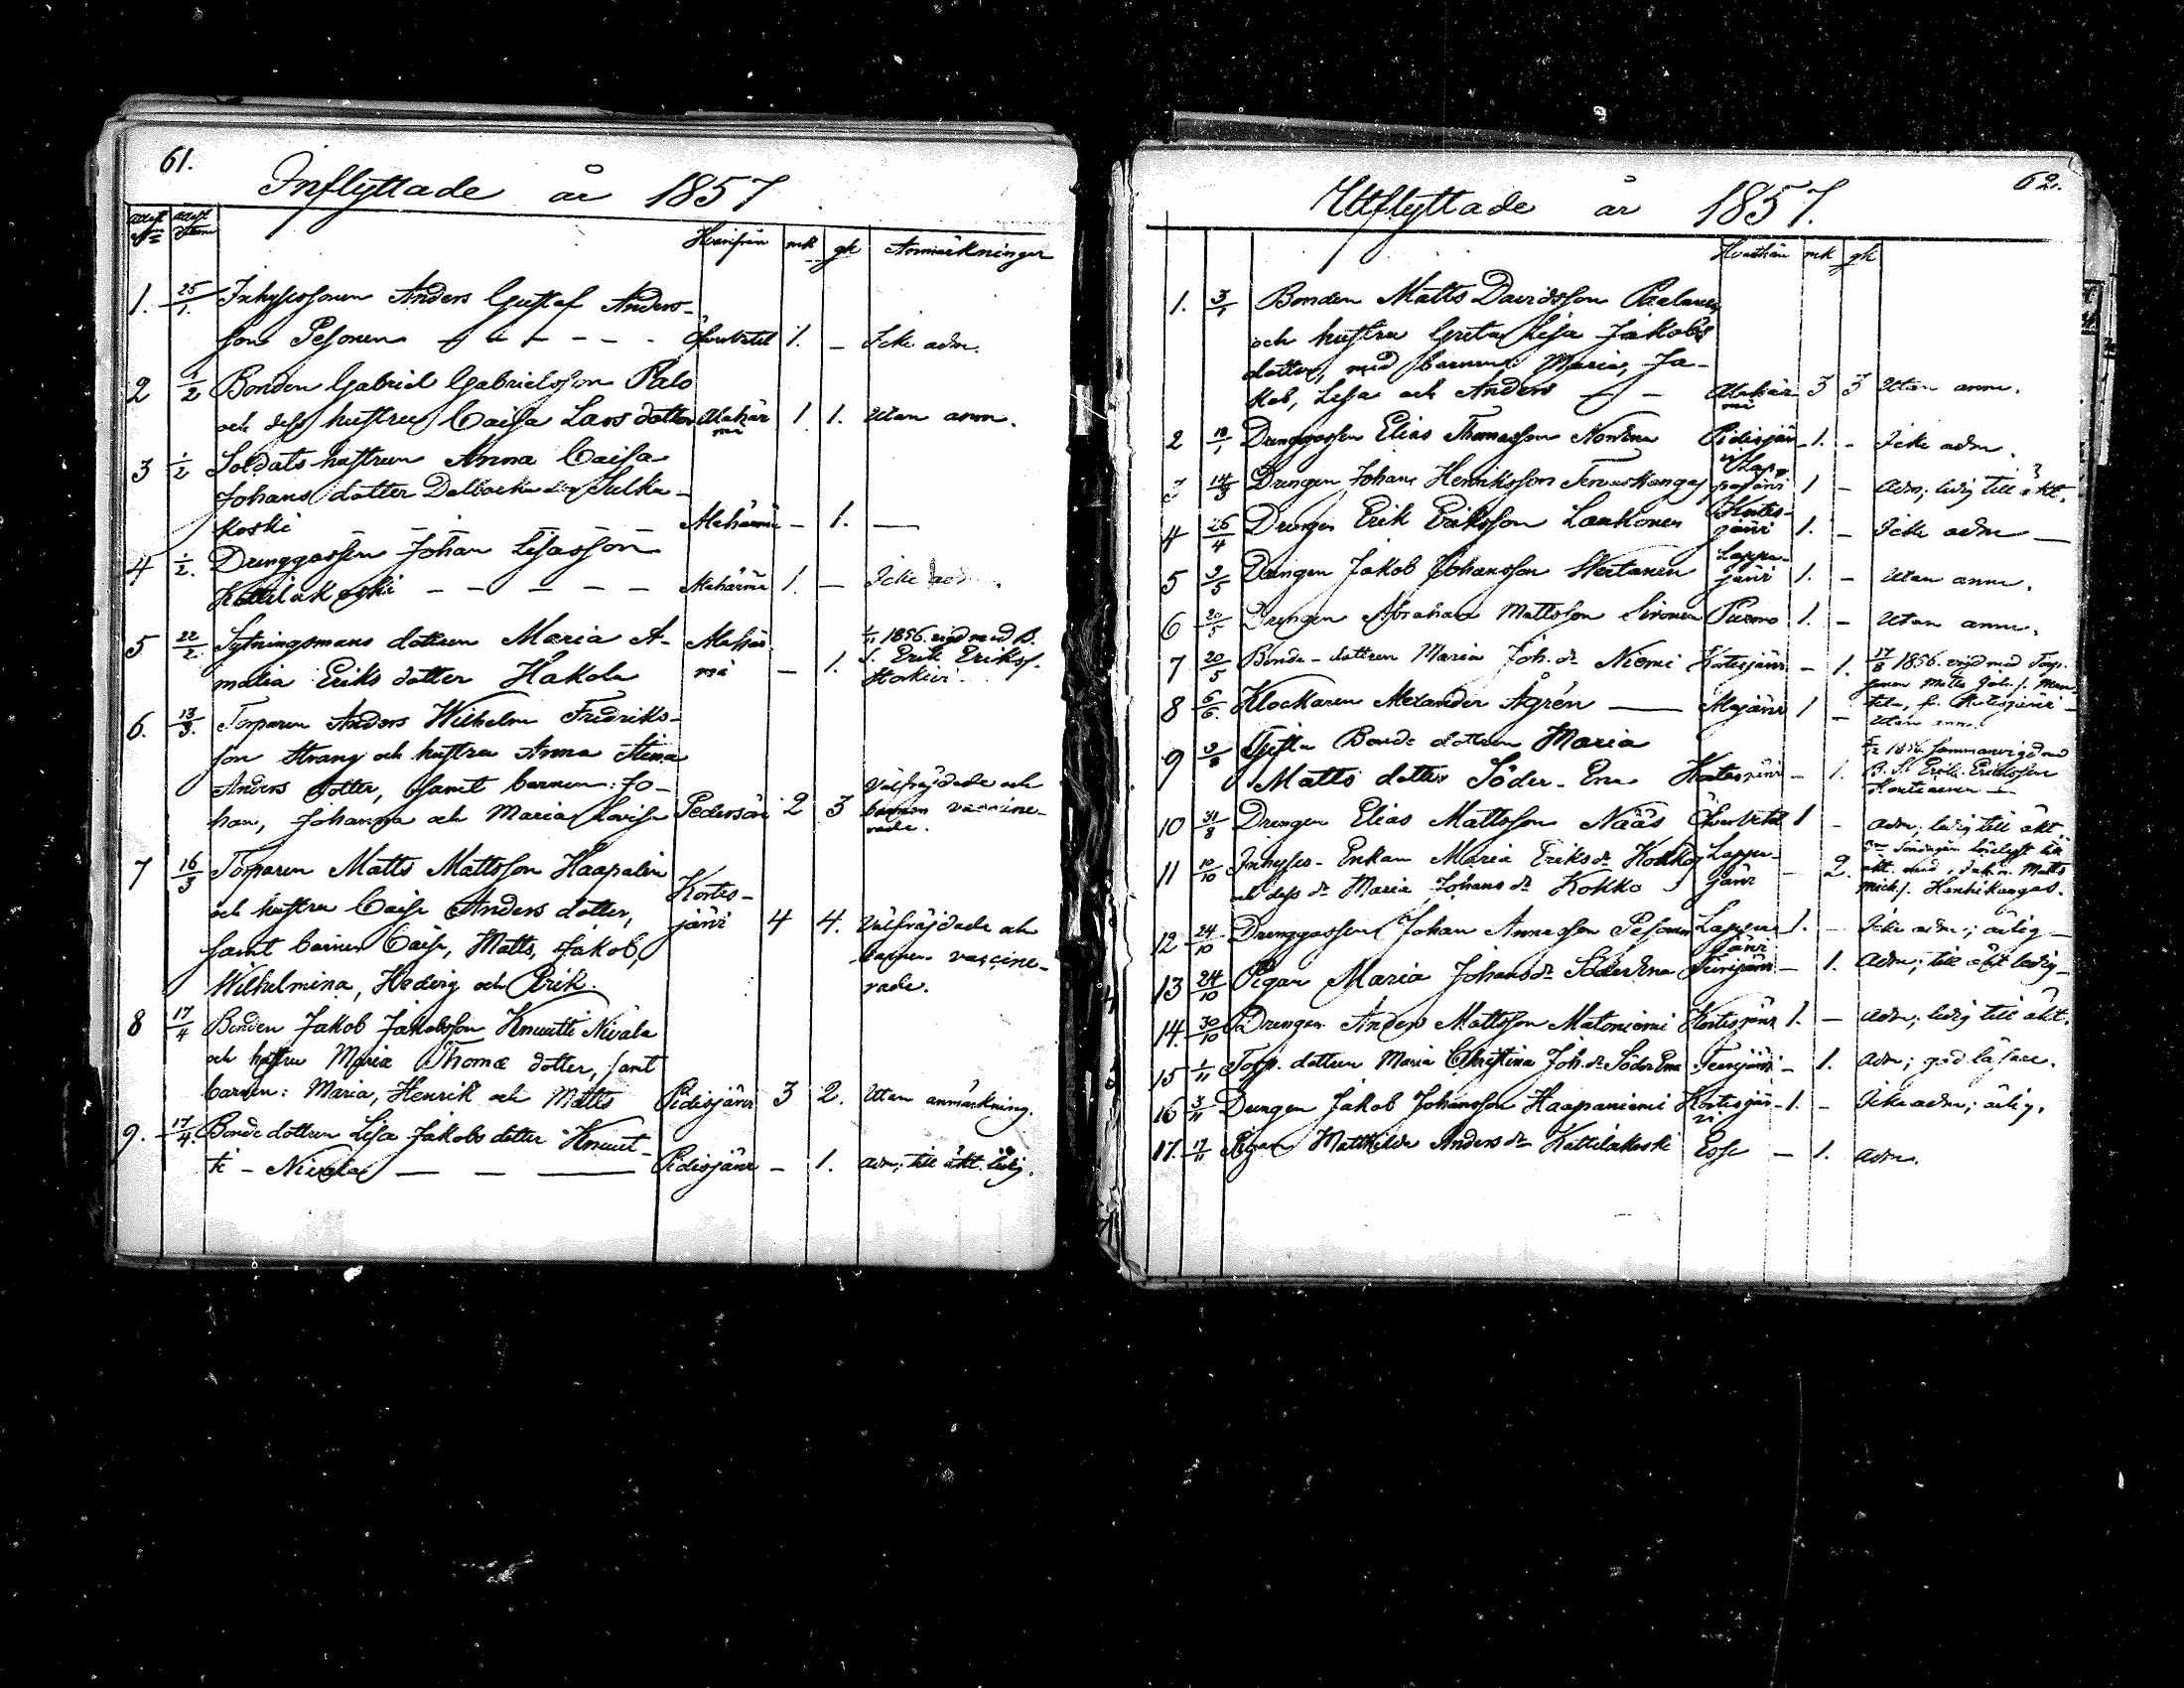 61.
Inflyttade år 1857
Hvarifrån mk gk Anmärkningar
1. 25/1. Inhysessonen Anders Gustaf Anders-
son Pesonen — Öfvervetil 1. — Icke adm.
2 1/2 Bonden Gabriel Gabrielsson Palo
och dess hustru Caisa Lars dotter Alahär
mä 1 1. Utan anm.
3 1/2 Soldats hustrun Anna Caisa
Johans dotter Dalbacka Sulka-
koski Alahärmä — 1. —
4 1/2. Drenggossen Johan Lisasson
Kattilakoski — — — — — Alahärmä 1. — Icke adm.
5 22/2. Sytningsmans dottren Maria A- Alahär
malia Eriks dotter Hakola mä — 1.
1/11 1856. vigd med B.
S. Erik Erikss.
6. 13/3. Torparen Anders Wilhelm Fredriks-
son Strang och hustru Anna Stina
Anders dotter, samt barnen: Jo-
han, Johanna och Maria Lovisa Pedersöre 2 3
Välfräjdade och
barnen vaccine-
rade.
7 16/3 Torparen Matts Mattsson Haapalin
och hustru Caisa Anders dotter, Kortes-
järvi 4 4. Välfräjdade och
samt barnen Caisa, Matts, Jakob,
barnen vaccine-
Wilhelmina, Hedvig och Erik.
rade.
8 17/4 Bonden Jakob Jakobsson Knuutti Nivala
och hustru Maria Thomæ dotter, samt
barnen: Maria, Henrik och Matts Pidisjärvi 3 2. Utan anmärkning.
9. 17/4. Bonde dottren Lisa Jakobs dotter Knuut-
ti - Nivala — — — Pidisjärvi — 1. adm; till äkt. ledig.
62.
Utflyttade år 1857.
Hvarthän mk gk
1. 3/1 Bonden Matts Davidsson Paalanen
och hustru Greta Lisa Jakobs
dotter, med barnen: Maria, Ja-
kob, Lisa och Anders — — Alahär-
mä 3 3 Utan anm.
2 Drenggossen Elias Thomasson Pidisjärvi 1. - Icke adm.
3 Drengen Johan Henriksson Lappajärvi 1 — Adm; ledig till äkt.
4 26/4 Drengen Erik Eriksson Laukonen Kortes-
järvi 1. — Icke adm —
5 9/5 Drengen Jakob Johansson Lappa-
järvi 1. — Utan anm.
6 Drengen Abraham Mattsson Sironen Purmo 1. — Utan anm.
7 20/5 Bonde-dottren Maria Joh. dr Niemi Kortesjärvi — 1.
17/8 1856. vigd med Torp.
8 6/6. Klockaren Alexander Ågrén — Alajärvi 1 — Utan anm.
9 Gifta Bonde dottren Maria
Matts dotter Söder-Ena Kortesjärvi — 1.
1856 sammanvigd med
B. S. Erik Eriksson
10 31/8 Drengen Elias Mattsson Nääs Öfvervetil 1 - Adm; ledig till äkt.
11 10/10 Inhyses-Enkan Maria Eriks dr Kokko
och dess dr Maria Johans dr Kokko Lappa-
järvi — 2.
äkt. med Matts
Mich s. Henrikangas.
12 24/10 Drenggossen Johan Annasson Pesonen Lappa
järvi 1. — Icke adm; ärlig —
13 24/10 Pigan Maria Johans dr Söder Ena Evijärvi — 1. Adm; till äkt ledig —
14. 30/10 Drengen Anders Mattsson Matoniemi Kortesjärvi 1. — Adm; ledig till äkt.
15 1/11 Torp. dottren Maria Christina Joh. dr Söder Ena Evijärvi — 1. Adm; god läsare.
16 3/11 Drengen Jakob Johansson Haapaniemi Kortesjär-
vi 1. — Icke adm; ärlig.
17. 17/11 Pigan Mathilda Anders dr Kattilakoski Esse — 1. Adm.